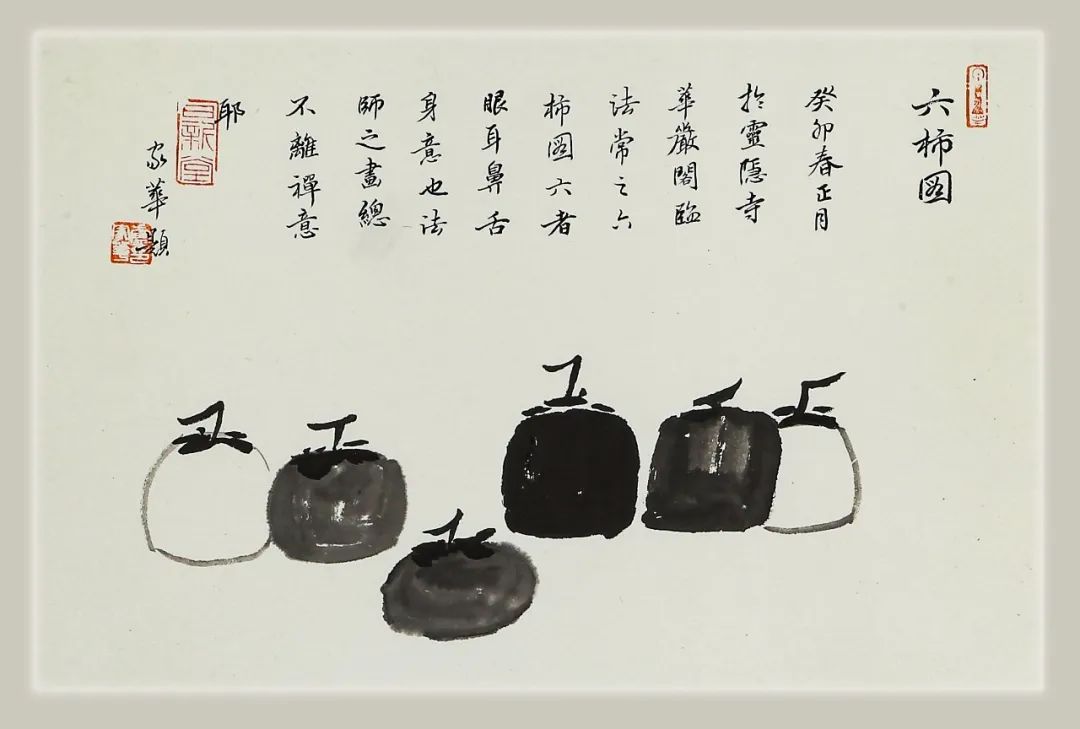 六柿図
癸卯春正月
於靈隱寺
華嚴閣臨
法常之六
柿図六者
眼耳鼻舌
身意也法
師之畫總
不離禪意
耶
家華題
日新堂